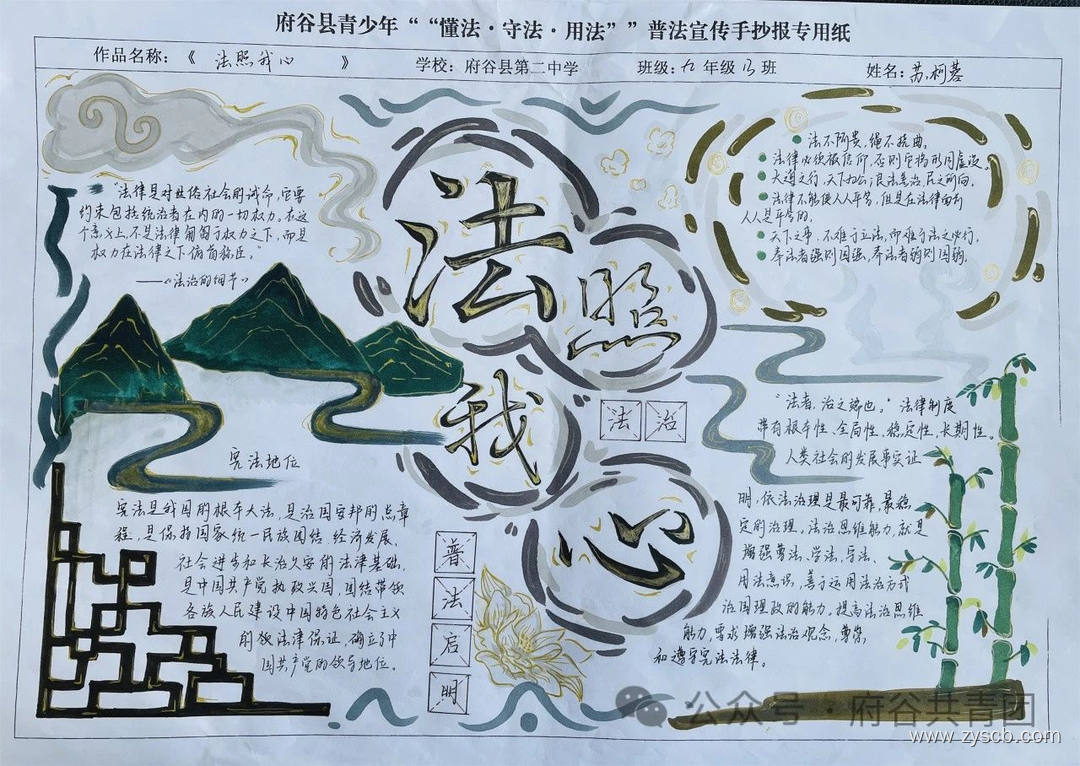 府谷县青少年““懂法·守法·用法””普法宣传手抄报专用纸
作品名称：《 法照我心 》 学校：府谷县第二中学 班级：九年级13班 姓名：苏柯蓉
“法律是对世俗社会的诫命，它要
约束包括统治者在内的一切权力，在这
个意义上，不是法律匍匐于权力之下，而是
权力在法律之下俯首称臣。
——《法治的细节》
法照我心
法不阿贵，绳不挠曲。
法律必须被信仰，否则它将形同虚设。
大道之行，天下为公；良法善治，民之所向。
法律不能使人人平等，但是在法律面前
人人是平等的。
天下之事，不难于立法，而难于法之必行。
奉法者强则国强，奉法者弱则国弱。
法治
宪法地位
宪法是我国的根本大法，是治国安邦的总章
程，是保持国家统一民族团结、经济发展、
社会进步和长治久安的法律基础，
是中国共产党执政兴国，团结带领
各族人民建设中国特色社会主义
的法律保证，确立了中
国共产党的领导地位。
普法启明
“法者，治之端也。”法律制度
带有根本性、全局性、稳定性、长期性。
人类社会的发展事实证
明，依法治理是最可靠、最稳
定的治理，法治思维能力，就是
增强尊法、学法、守法、
用法意识，善于运用法治方式
治国理政的能力，提高法治思维
能力，要求增强法治观念，尊崇
和遵守宪法法律。
公众号·府谷共青团
www.zyscb.com